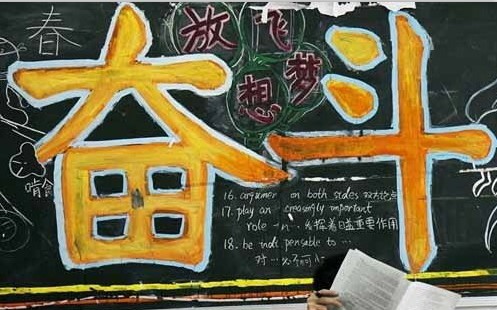 春
放飞
梦想
奋斗
啃
16. on both sides 双方论点
17. play an creasingly important
role in … 发挥着日益重要作用
18. be indi pensable to …
对 … 必不可